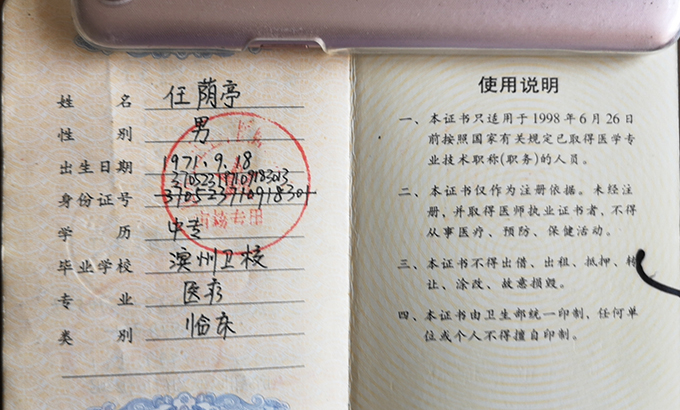 姓名 任荫亭
性别 男
出生日期 1971.9.18
身份证号
学历 中专
毕业学校 滨州卫校
专业 医疗
类别 临床
审核专用
使用说明
一、本证书只适用于1998年6月26日
前按照国家有关规定已取得医学专
业技术职称(职务)的人员。
二、本证书仅作为注册依据。未经注
册，并取得医师执业证书者，不得
从事医疗、预防、保健活动。
三、本证书不得出借、出租、抵押、转
让、涂改、故意损毁。
四、本证书由卫生部统一印制、任何单
位或个人不得擅自印制。